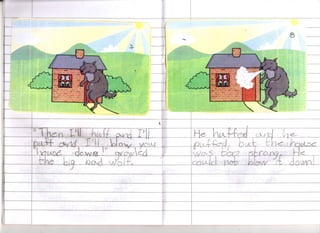 "Then I'll huff and I'll
puff and, I'll blow you
house down!" growled
the big bad wolf.
8
He huffed and he
puffed, but the house
was too strong. He
could not blow it down!